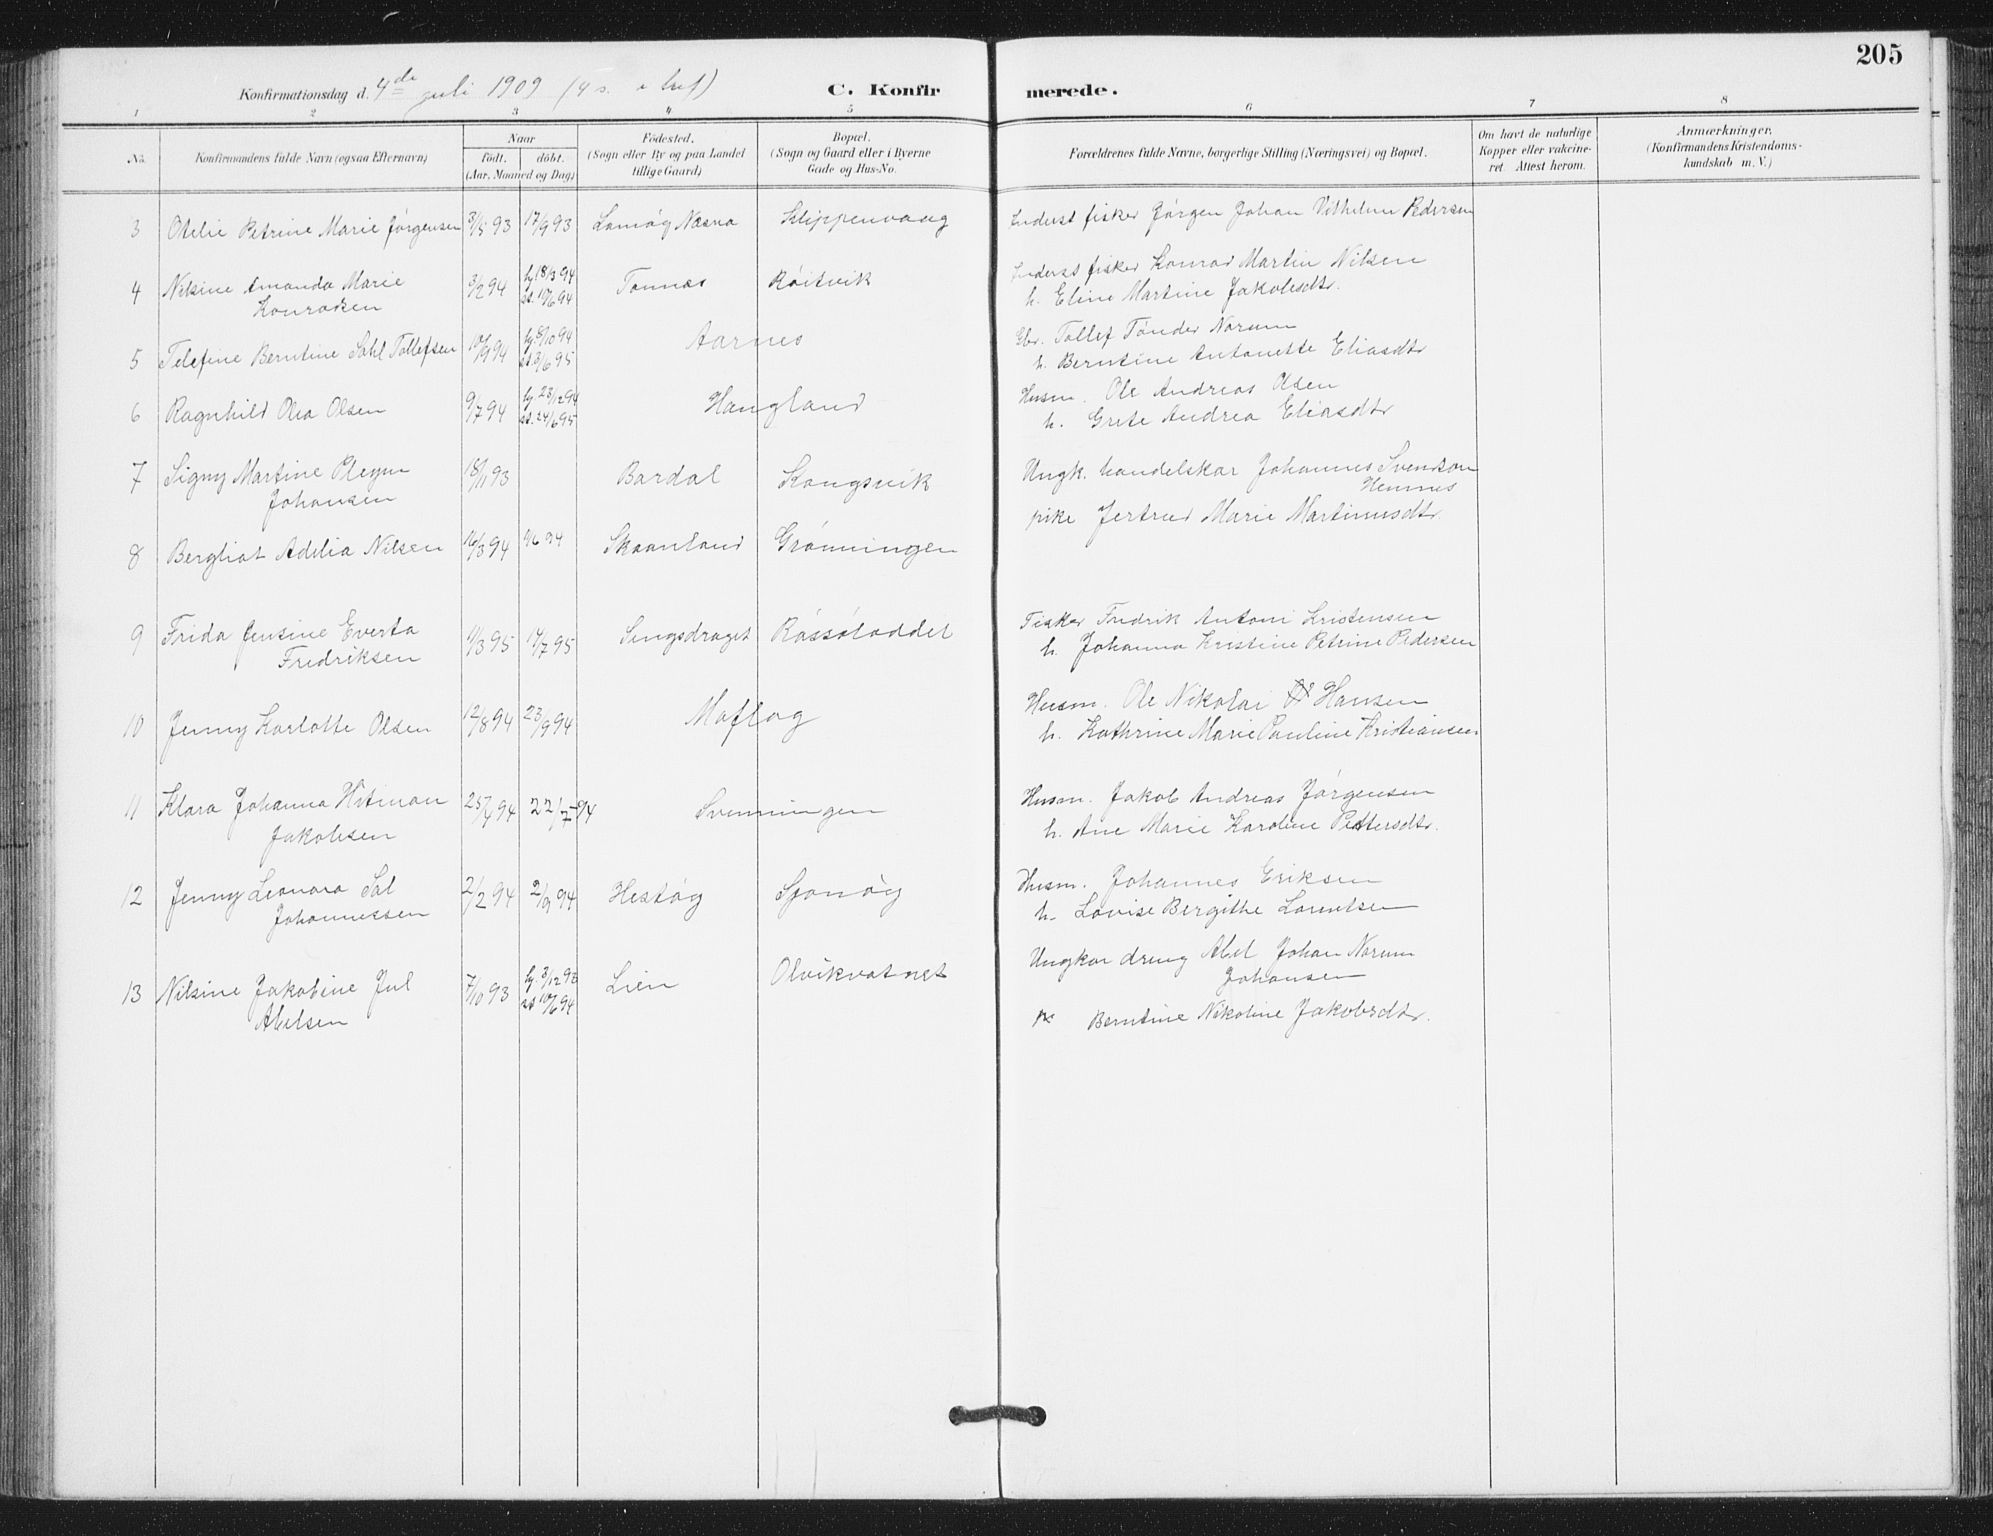 205
Konfirmationsdag d. 4de juli 1909 (4 s. e. tref)
C. Konfirmerede.
1 2 3 4 5 6 7 8
No. Konfirmandens fulde Navn (ogsaa Efternavn) Naar födt. döbt. (Aar, Maaned og Dag) Födested. (Sogn eller By og paa Landet tillige Gaard) Bopæl. (Sogn og Gaard eller i Byerne Gade og Hus-No. Forældrenes fulde Navne, borgerlige Stilling (Næringsvei) og Bopæl. Om havt de naturlige Kopper eller vakcineret. Attest herom. Anmærkninger. (Konfirmandens Kristendomskundskab m. V.)
3 Otelie Petrine Marie Jørgensen 3/5 93 17/9 93 Lamøy Næsna Klippenvaag Inderst fisker Jørgen Johan Vilhelm Pedersen
4 Nilsine Amanda Marie 3/2 94 hj. 18/3 94 Tonnes Røitvik Inderst fisker Konrad Martin Nilsen
Konradsen st. 10/6 94 h. Eline Martine Jakobsdtr.
5 Telefine Berntine Sahl Tollefsen 10/9 94 hj. 8/10 94 Aarnes Gbr. Tollef Tønder Norum
st. 3/6 95 h. Berntine Antonette Eliasdtr
6 Ragnhild Olea Olsen 9/7 94 hj. 23/12 94 Haugland Husm. Ole Andreas Olsen
st. 24/6 95 h. Grete Andrea Eliasdtr
7 Signy Martine Pleym 18/11 93 Bardal Kongsvik Ungk. handelskar Johannes Svendson
Johansen Hemnes
pike Jertrud Marie Martinusdtr
8 Bergliot Adelia Nilsen 16/3 94 94 Skaanland Grønningen
9 Frida Jensine Everta 1/3 95 17/7 95 Sengsdraget Røssøladdet Fisker Fredrik Antoni Kristensen
Fredriksen h. Johanna Kristine Petrine Pedersen
10 Jenny Karlotte Olsen 12/8 94 23/9 94 Moflag Husm. Ole Nikolai Hansen
h. Kathrine Marie Pauline Kristiansen
11 Klara Johanna Hitman 25/4 94 22/7 94 Svenningen Husm. Jakob Andreas Jørgensen
Jakobsen h. Ane Marie Karoline Pettersdtr.
12 Jenny Leonora Sal 2/2 94 2/9 94 Hestøy Sjonøy Husm. Johannes Eriksen
Johannessen h. Lovise Bergithe Lorentsen
13 Nilsine Jakobine Jul 7/10 93 hj. 3/12 93 Lien Olvikvatnet Ungkar dreng Abel Johan Norum
Abelsen st. 10/6 94 Johansen
pk Berntine Nikoline Jakobsdtr.